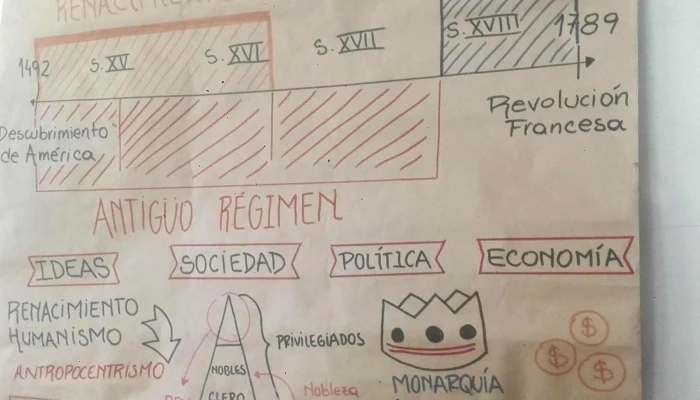 RENACIMIENTO
1492 S.XV S.XVI S.XVII S.XVIII 1789
Descubrimiento
de América
Revolución
Francesa
ANTIGUO RÉGIMEN
IDEAS SOCIEDAD POLÍTICA ECONOMÍA
RENACIMIENTO
HUMANISMO
ANTROPOCENTRISMO
PRIVILEGIADOS
NOBLES
CLERO
Nobleza
MONARQUÍA
$ $ $